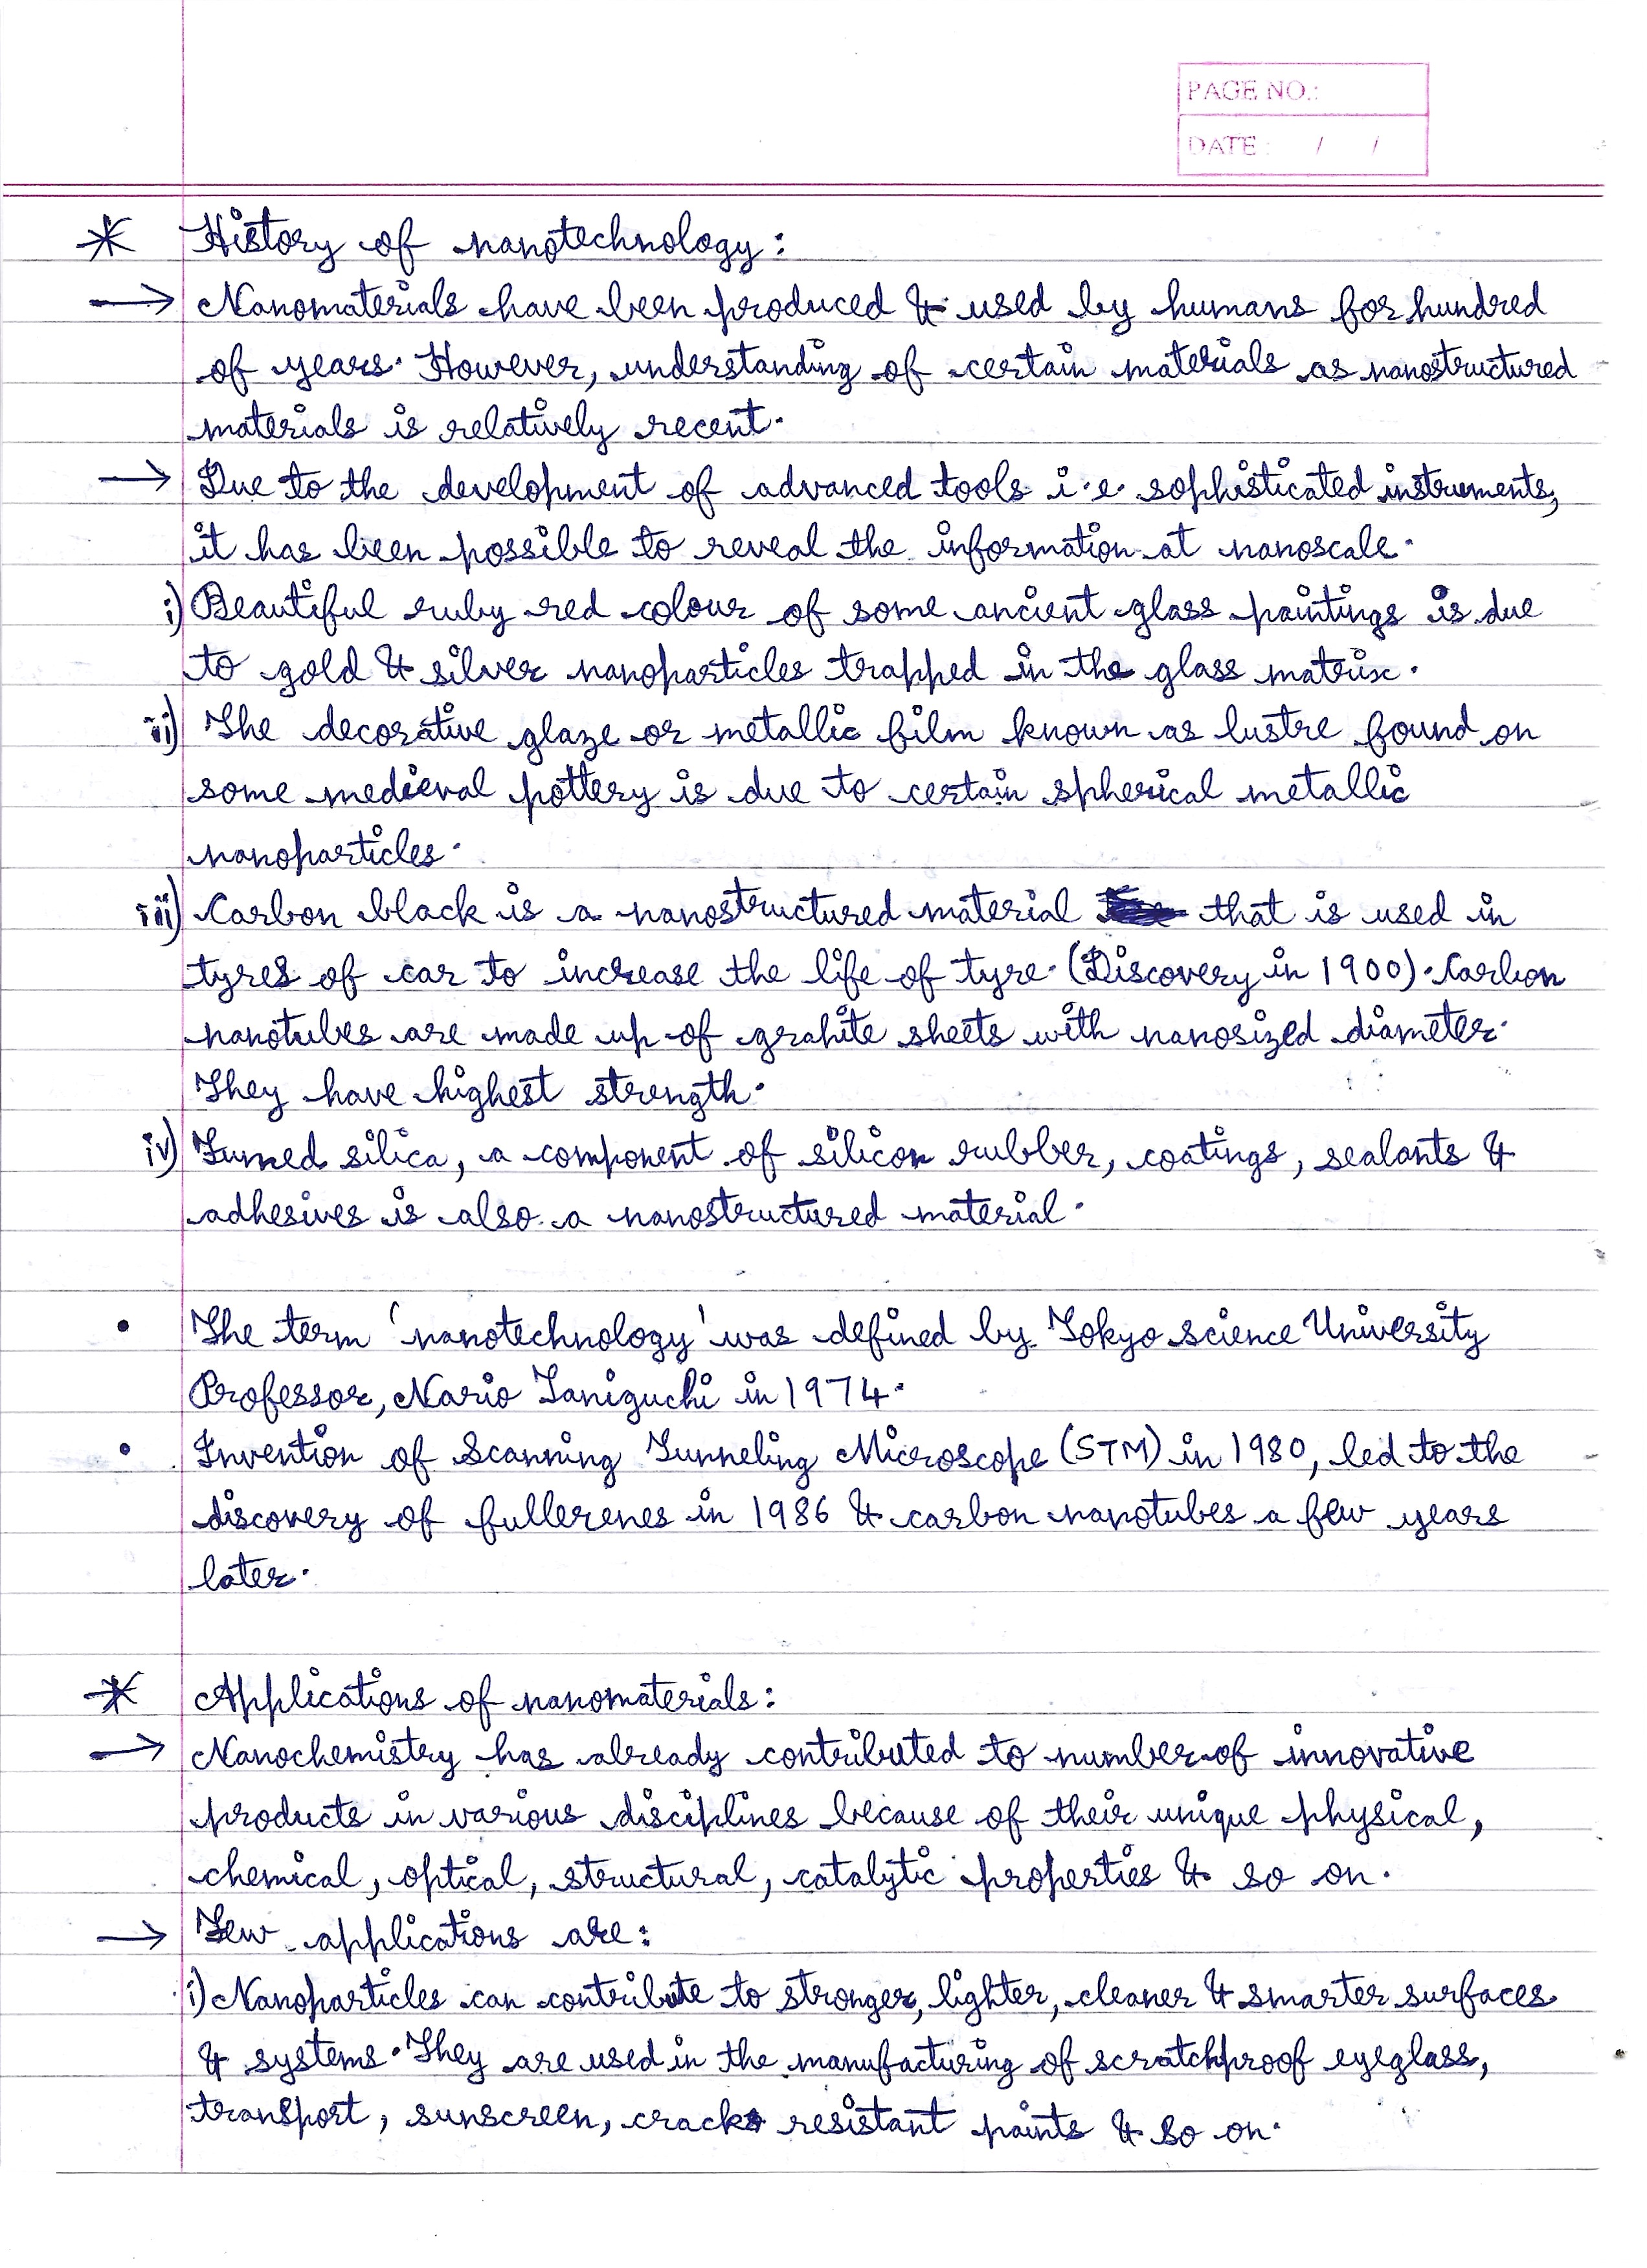 PAGE NO.:
DATE : / /
* History of nanotechnology :
→ Nanomaterials have been produced & used by humans for hundred
of years. However, understanding of certain materials as nanostructured
materials is relatively recent.
→ Due to the development of advanced tools i.e. sophisticated instruments,
it has been possible to reveal the information at nanoscale.
i) Beautiful ruby red colour of some ancient glass paintings is due
to gold & silver nanoparticles trapped in the glass matrix.
ii) The decorative glaze or metallic film known as lustre found on
some medieval pottery is due to certain spherical metallic
nanoparticles.
iii) Carbon black is a nanostructured material that is used in
tyres of car to increase the life of tyre. (Discovery in 1900). Carbon
nanotubes are made up of grahite sheets with nanosized diameter.
They have highest strength.
iv) Fumed silica, a component of silicon rubber, coatings, sealants &
adhesives is also a nanostructured material.
• The term 'nanotechnology' was defined by Tokyo science University
Professor, Nario Taniguchi in 1974.
• Invention of Scanning Tunneling Microscope (STM) in 1980, led to the
discovery of fullerenes in 1986 & carbon nanotubes a few years
later.
* Applications of nanomaterials :
→ Nanochemistry has already contributed to number of innovative
products in various disciplines because of their unique physical,
chemical, optical, structural, catalytic properties & so on.
→ Few applications are :
i) Nanoparticles can contribute to stronger, lighter, cleaner & smarter surfaces
& systems. They are used in the manufacturing of scratchproof eyeglass,
transport, sunscreen, crack resistant paints & so on.